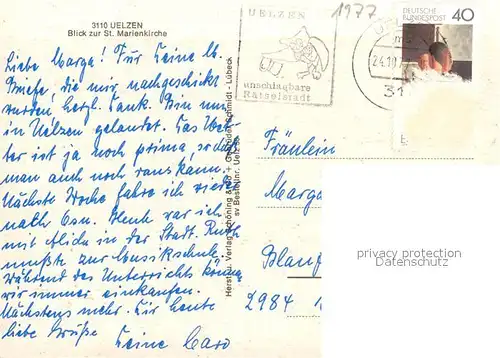 3110 UELZEN
Blick zur St. Marienkirche
Liebe Marga! Für Deine lb.
Briefe, die mir nachgeschickt
wurden, herzl. Dank. Bin nun
in Uelzen gelandet. Das Wet-
ter ist ja noch prima, so daß
man auch noch raus kann.
Nächste Woche fahre ich wieder
nach Osn. Heute war ich
mit in der Stadt. Ruth
mußte zur Musikschule.
Während des Unterrichts können
wir immer einkaufen.
Nächstens mehr. Für heute
liebe Grüße Deine Caro
Verlag Schöning & Co + Gebrüder Schmidt - Lübeck
Bestellnr.
UELZEN
unschlagbare
Rätselstadt
1977
24.10.77
31
DEUTSCHE
BUNDESPOST
40
Fräulein
Marga
2984
privacy protection
Datenschutz